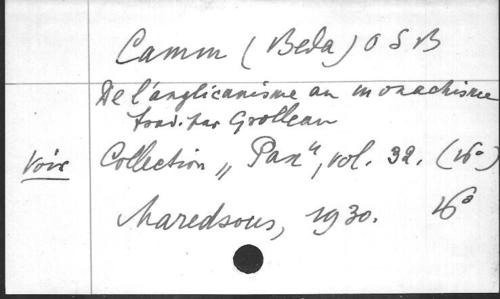 Camm (Beda) O S B
De l'anglicanisme au monachisme
trad. par Grolleau
Voir Collection „Pax", vol. 32. (16°)
Maredsous, 1930. 16°